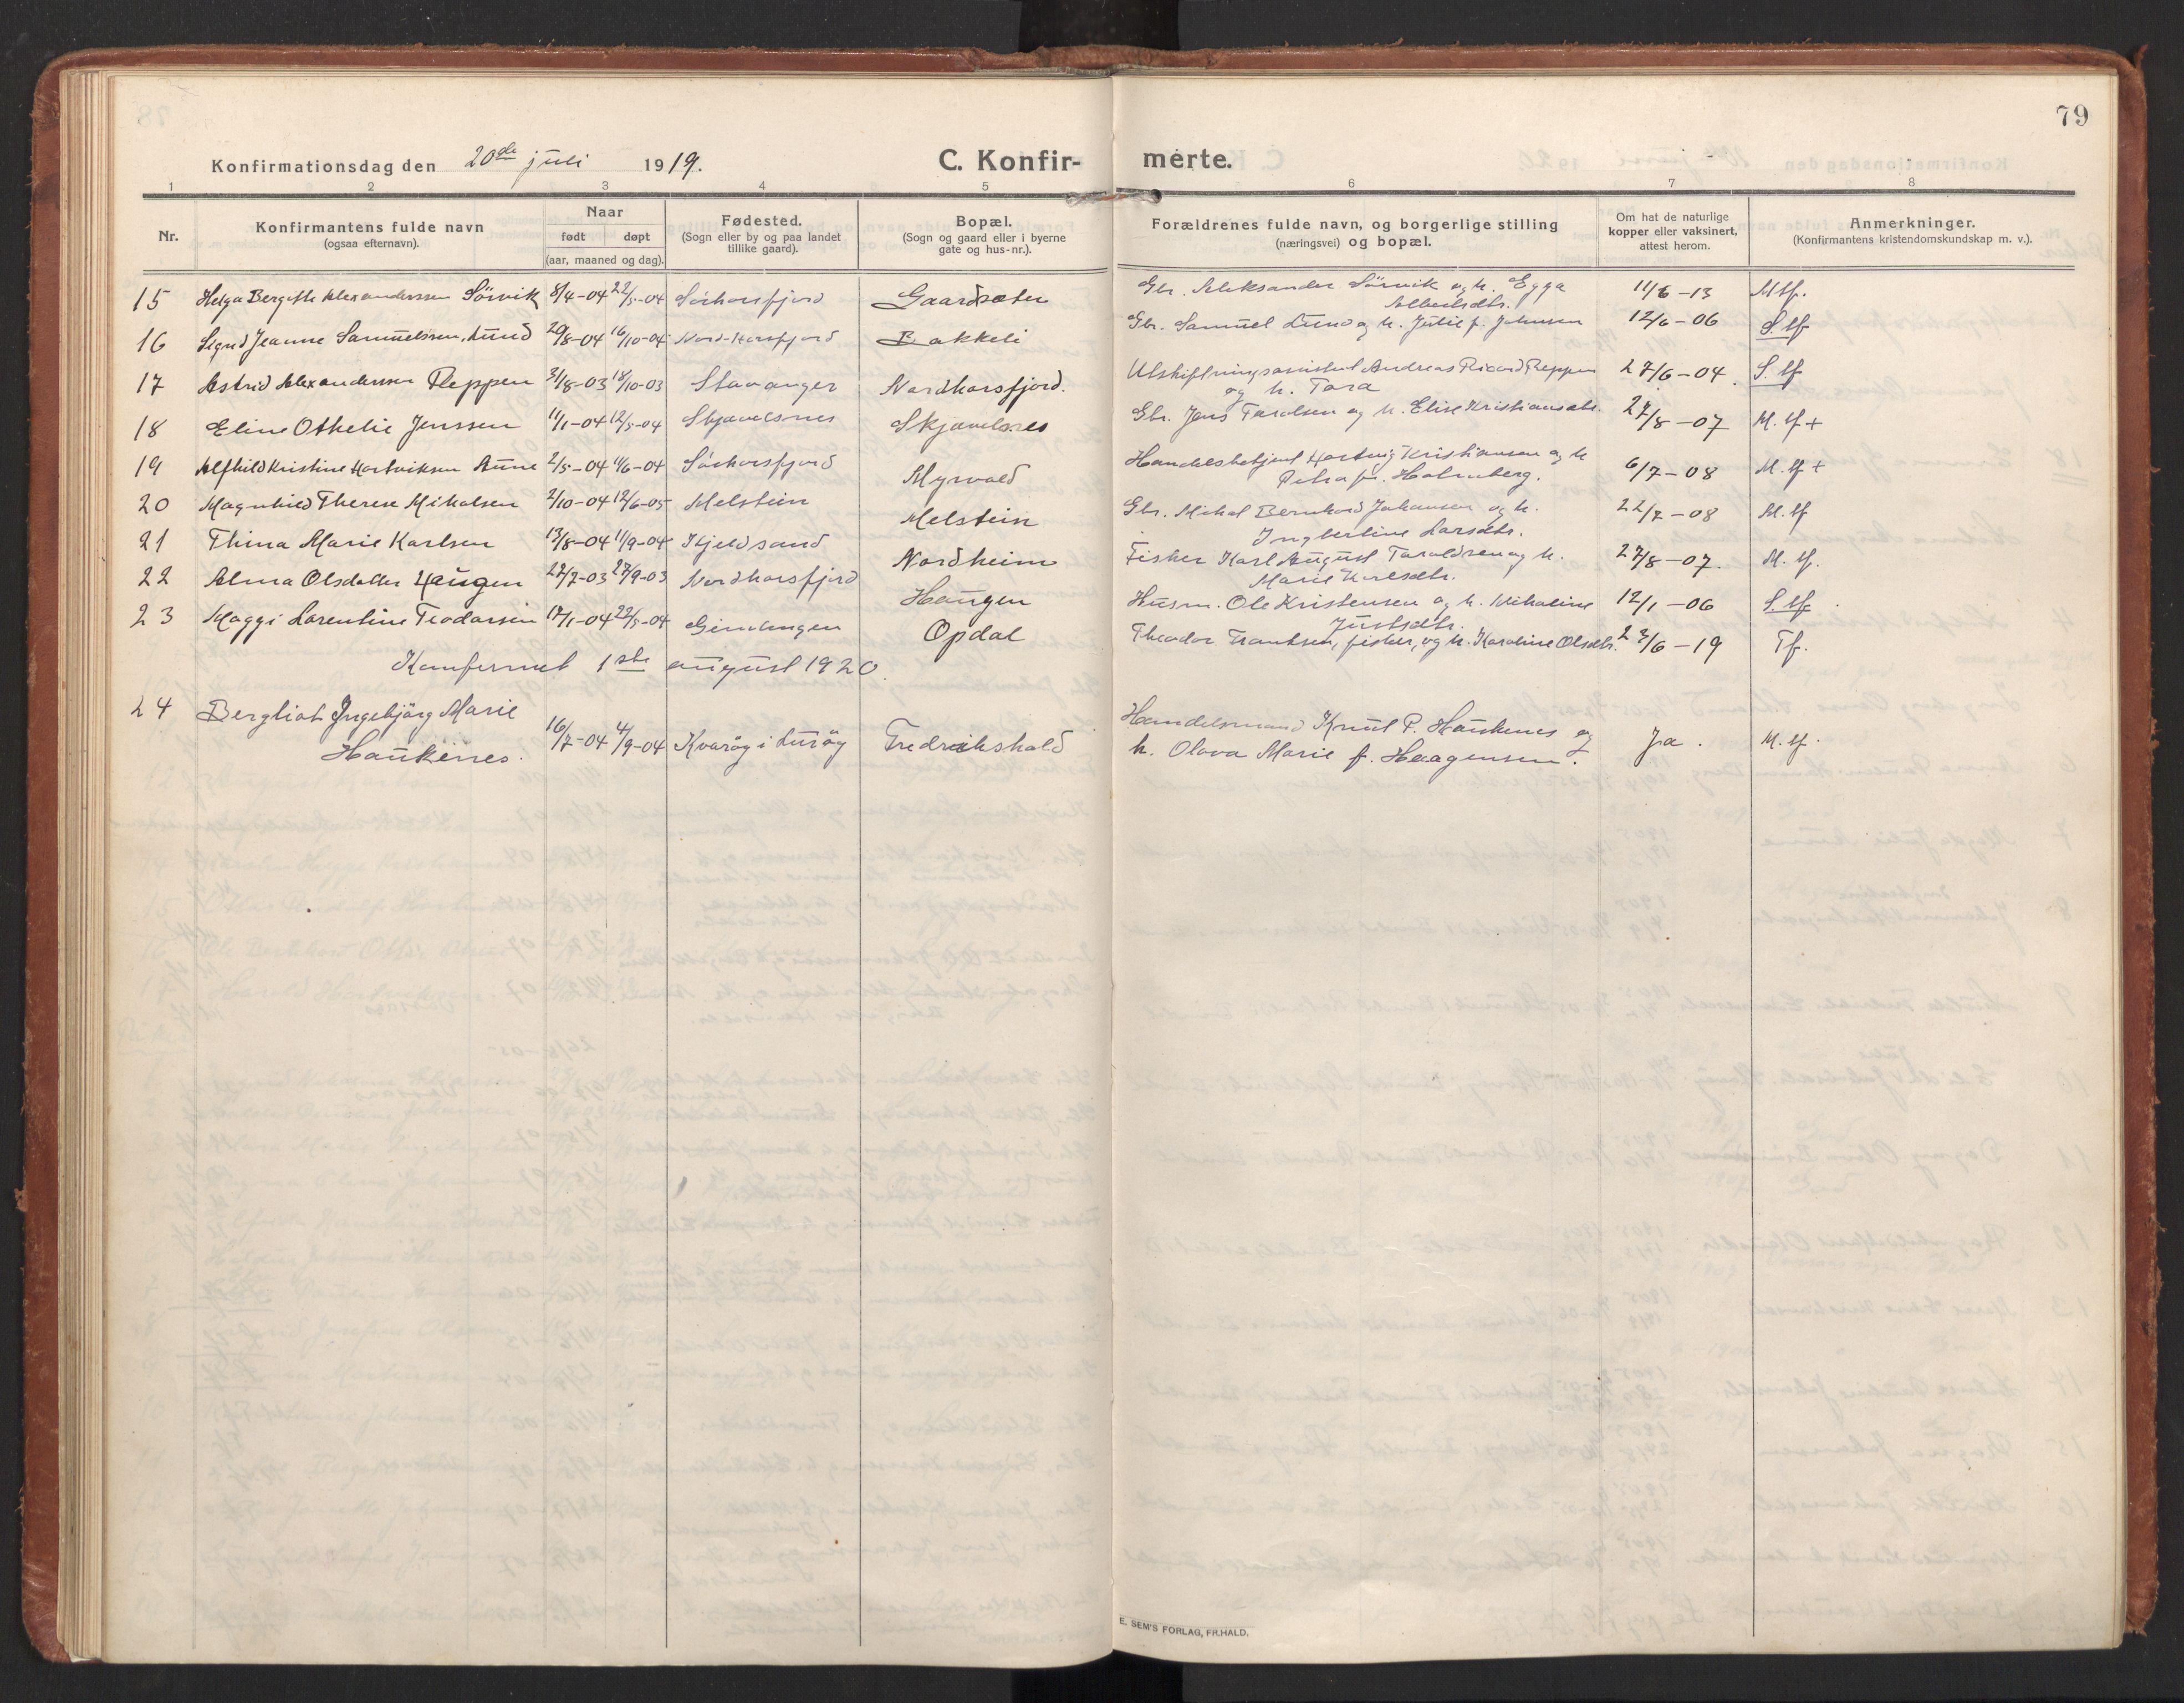 79
Konfirmationsdag den 20de juli 1919.
C. Konfirmerte.
1 2 3 4 5 6 7 8
Nr.
Konfirmantens fulde navn
(ogsaa efternavn).
Naar
født døpt
(aar, maaned og dag).
Fødested.
(Sogn eller by og paa landet
tillike gaard).
Bopæl.
(Sogn og gaard eller i byerne
gate og hus-nr.).
Forældrenes fulde navn, og borgerlige stilling
(næringsvei) og bopæl.
Om hat de naturlige
kopper eller vaksinert,
attest herom.
Anmerkninger.
(Konfirmantens kristendomskundskap m. v.).
15 Helga Bergitte Alexanderssen Sörvik 8/4-04 22/5-04 Sörhorsfjord Gaardsæter Gbr. Aleksander Sörvik og h. Egga 11/6-13 Mtf.
Albertsdtr.
16 Signd Jeanne Samuelssen Lund 20/8-04 16/10-04 Nord-Horsfjord Bakkeli Gbr. Samuel Lund og h. Julie f. Johnsen 12/6-06 S.tf
17 Astrid Alexandersen Reppen 31/8-03 18/10-03 Stavanger Nordhorsfjord. Utskiftningsassistent Andreas Ricard Reppen 27/6-04. S.tf
og h. Tora
18 Eline Othelie Jenssen 11/1-04 12/5-04 Skjævelsnes Skjævelsnes Gbr. Jens Tarolsen og h. Elise Kristiansdtr. 27/8-07 M.tf+
19 Alfhild Kristine Hartviksen Aune 2/5-04 11/6-04 Sörhorsfjord Myrvold Handelsbetjent Hartvig Kristiansen og h 6/7-08 M.tf+
Petra f. Holmberg.
20 Magnhild Therese Mikalsen 2/10-04 12/6-05 Melstein Melstein Gbr. Mikal Bernhard Johansen og h. 22/7-08 M.tf
Ingbertine Larsdtr.
21 Thina Marie Karlsen 13/8-04 11/9-04 Kjeldsand Nordheim Fisker Karl August Taraldsen og h. 27/8-07. M.tf.
Marie Karlsdtr.
22 Alma Olsdatter Haugen 22/7-03 27/9-03 Nordhorsfjord Haugen Husm. Ole Kristensen og h. Nikoline 12/1-06 S.tf.
Justsdtr.
23 Maggi Larentine Teodorsen 17/1-04 22/5-04 Opdal Theodor Frantsen, fisker, og h. Karoline Olsdtr. 23/6-19 Tf.
Konfirmert 1ste august 1920.
24 Bergliot Ingebjörg Marie
Haukenes. 16/7-04 4/9-04 Kvaröy i Luröy Fredrikshald Handelsmand Knut P. Haukenes og
h. Olava Marie f. Haagensen. Ja. M.tf.
E. SEM'S FORLAG, FR.HALD.